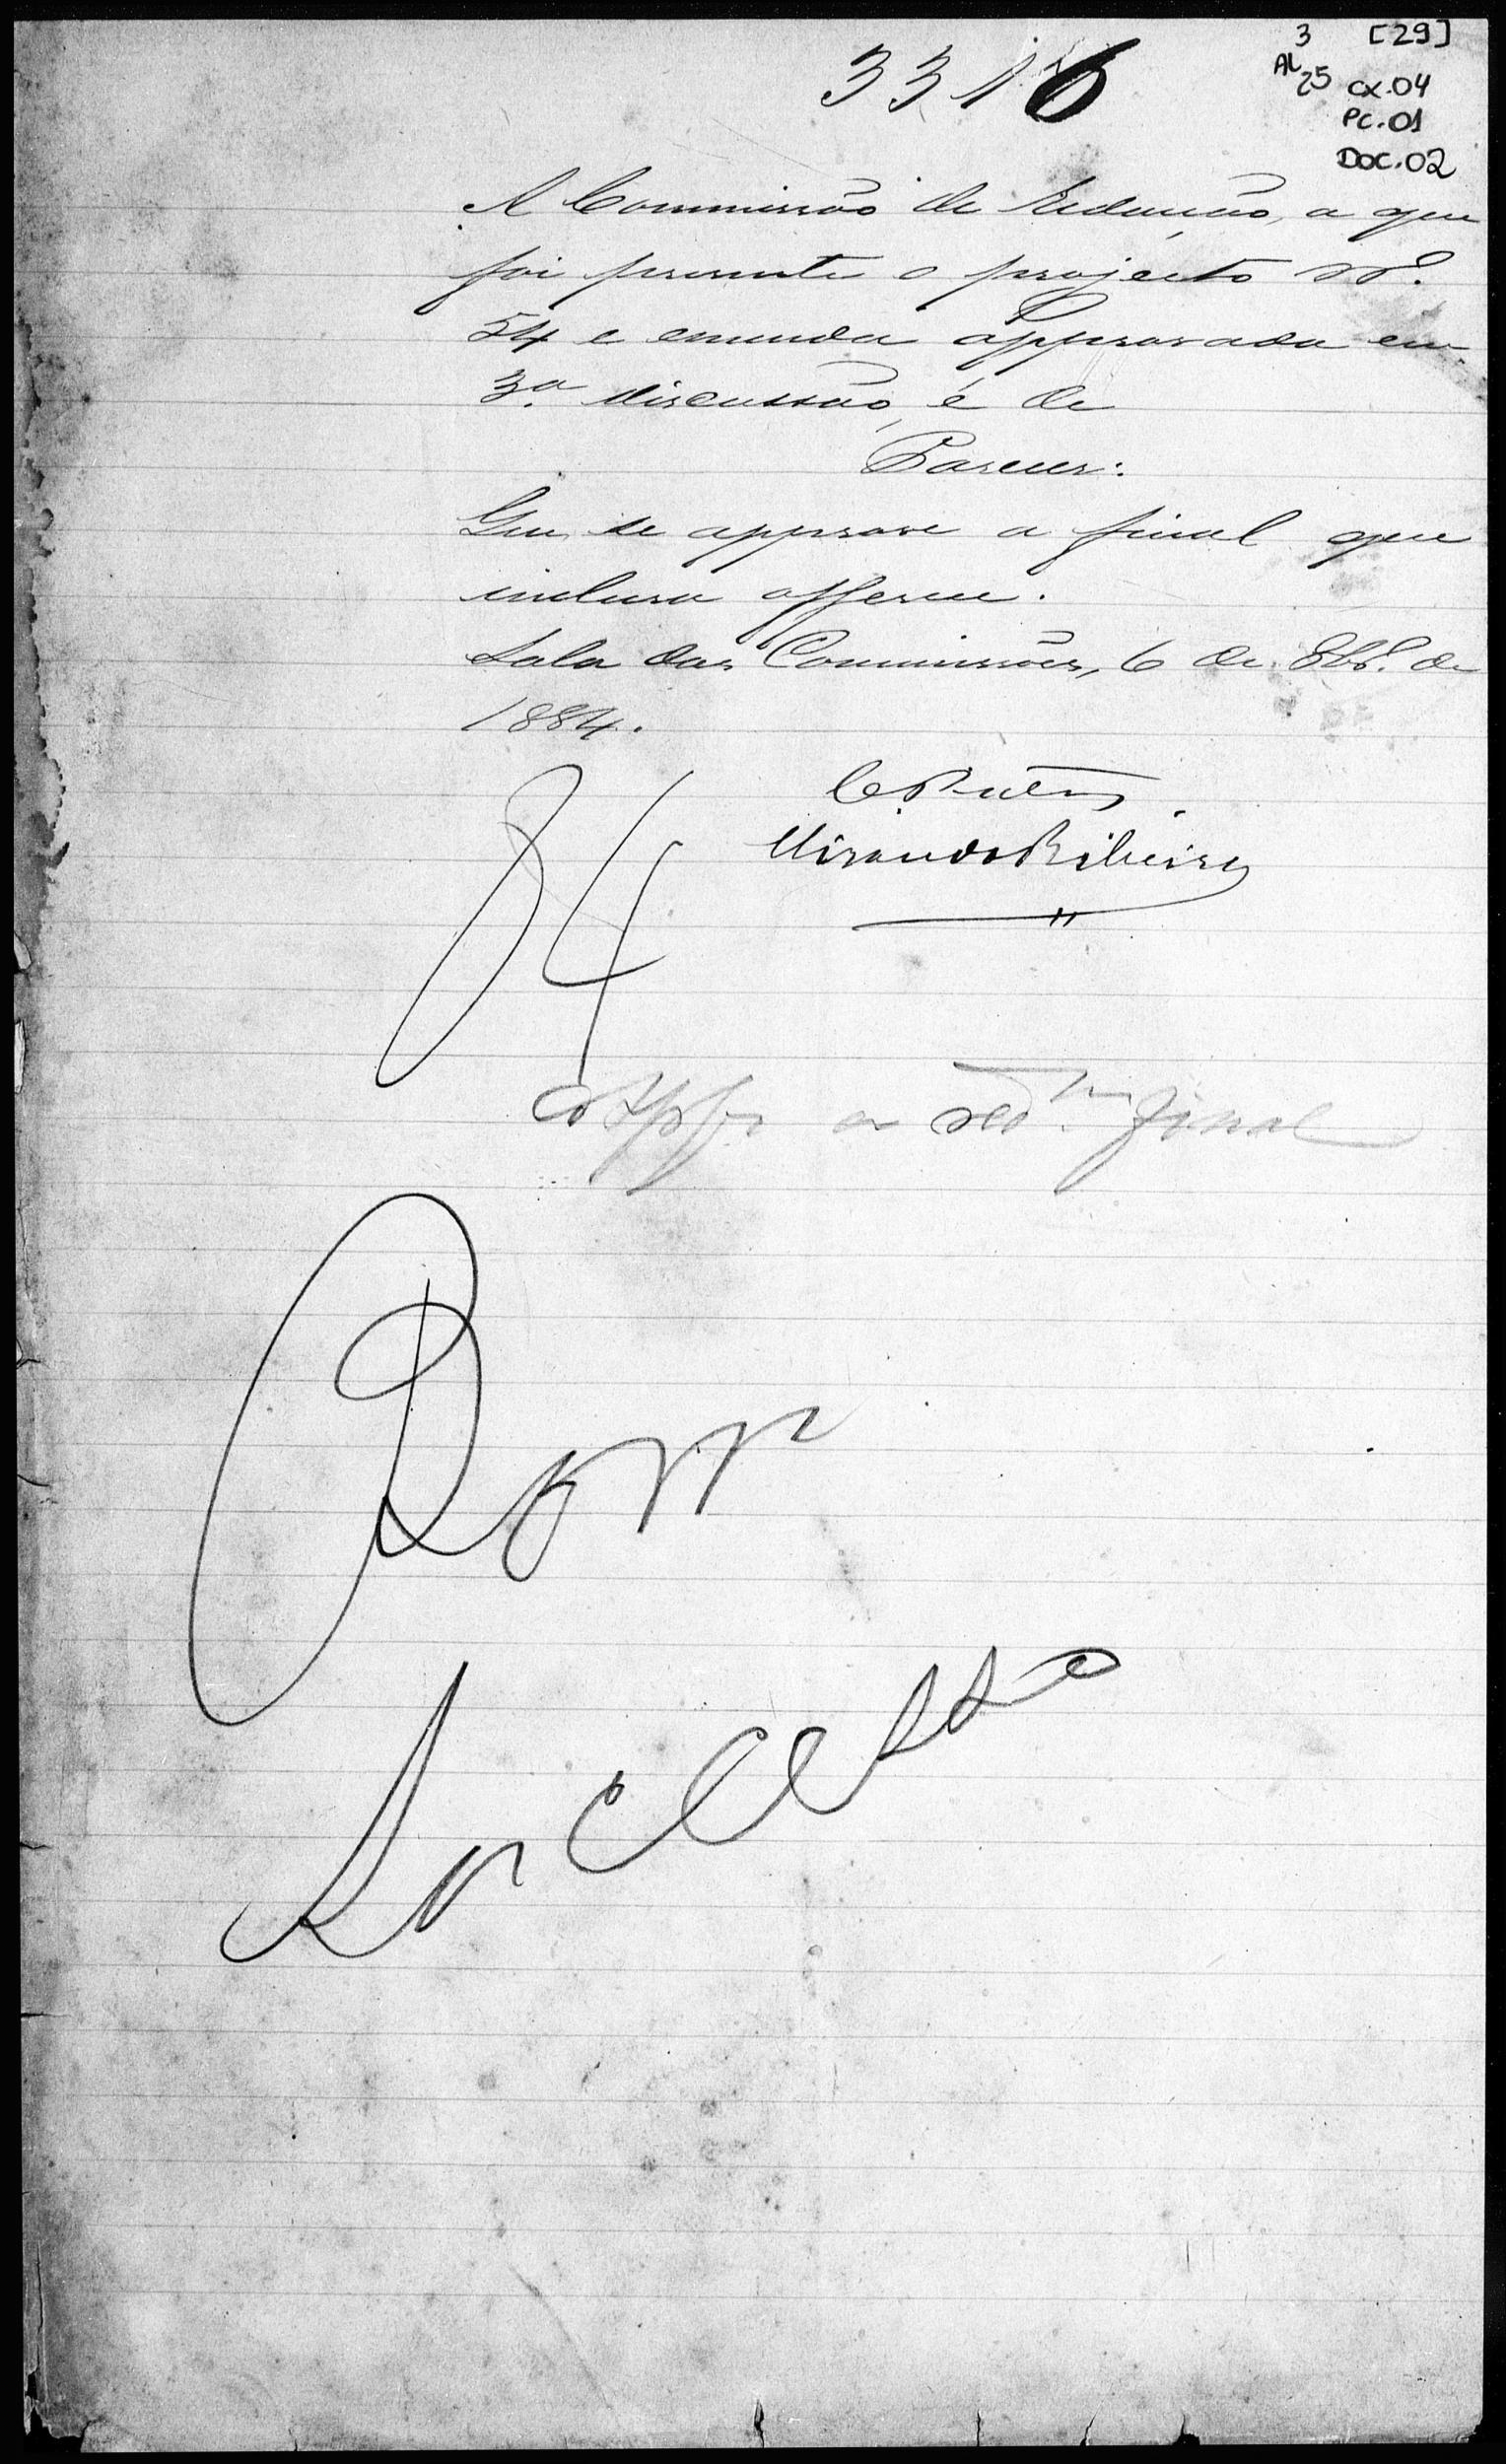 3316
3 [29]
AL 25 CX.04
PC.01
DOC.02
A Commissão de Redacção, a que
foi presente o projecto nº.
54 e emenda approvada em
3ª. discussão, é de
Parecer:
Que se approve a final que
inclusa offerece.
Sala das Commissões, 6 de 8br.º de
1884.
Miranda Ribeiro
a red.am final